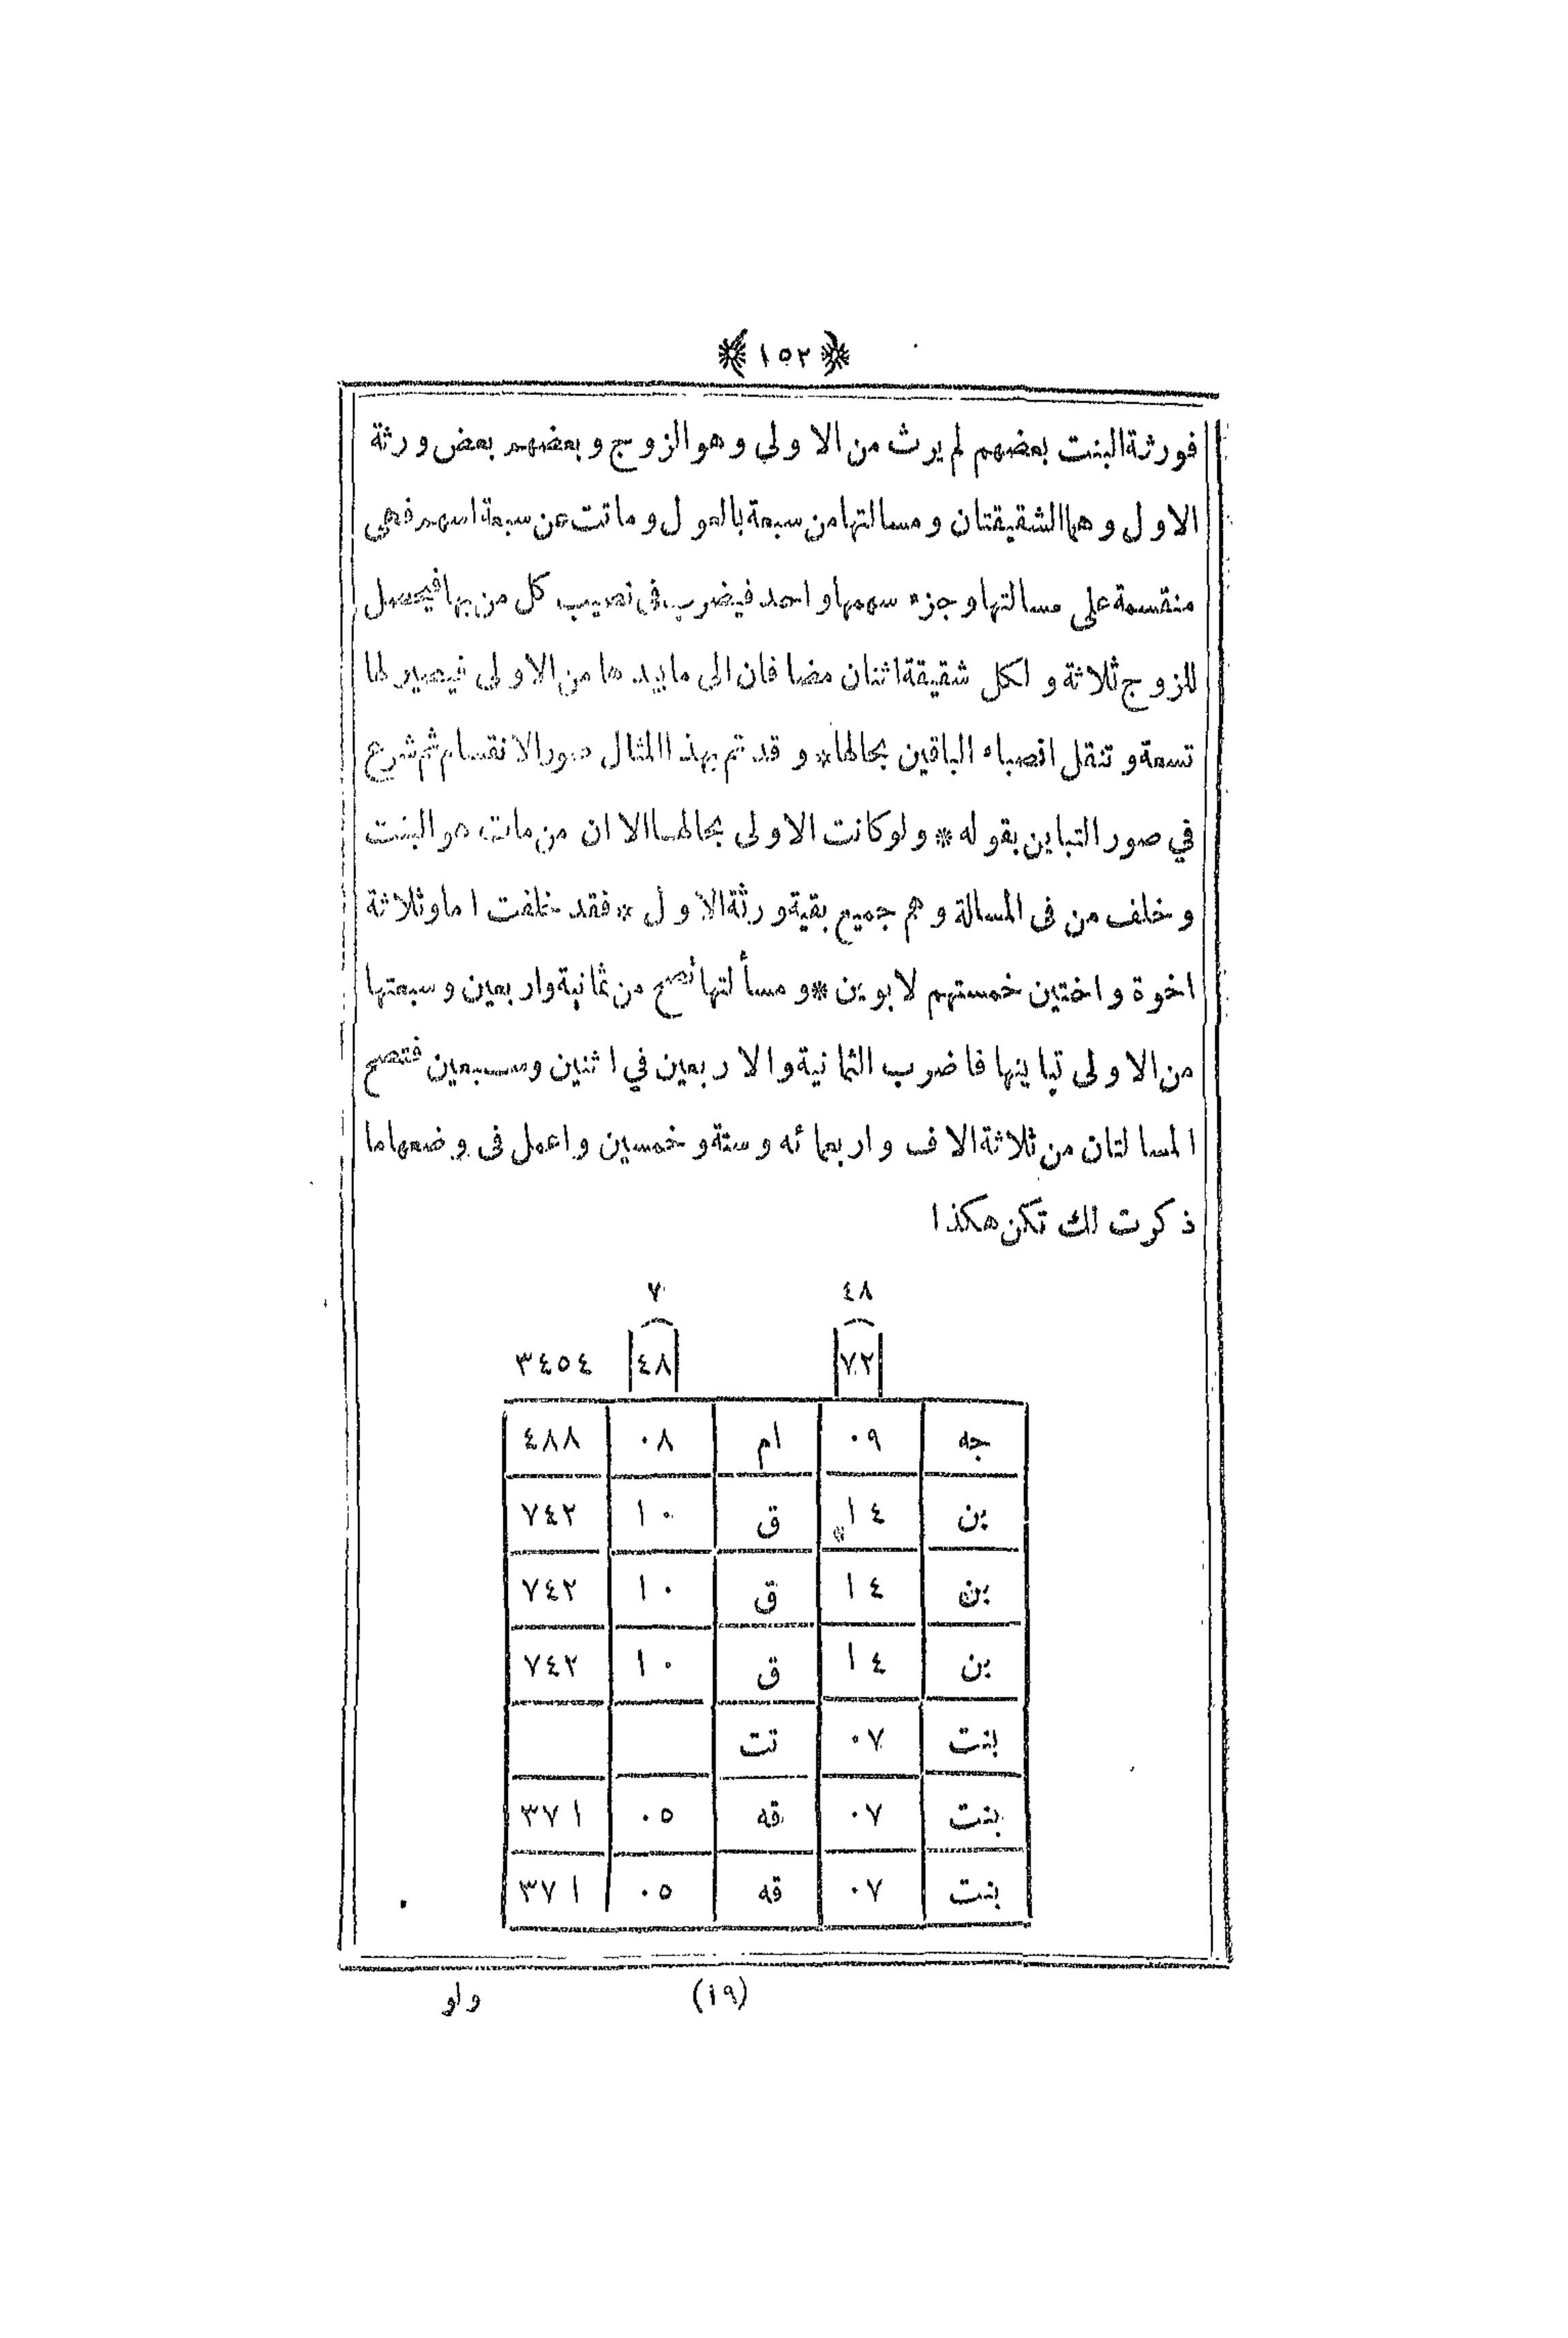 ١٥٢
فورثة البنت بعضهم لم يرث من الاولى وهو الزوج وبعضهم بعض ورثة
الاول وهما الشقيقتان ومسالتها من سبعة بالعول وماتت عن سبعة اسهم فهي
منقسمة على مسالتها وجزء سهمها واحد فيضرب فى نصيب كل من بها فيحصل
للزوج ثلاثة ولكل شقيقة اثنان مضافان الى مابيدها من الاولى فيصير لها
تسعة وتنقل انصباء الباقين بحالها* وقد تم بهذا المثال صور الانقسام ثم شرع
في صور التباين بقوله * ولوكانت الاولى بحالها الا ان من مات هو البنت
وخلف من فى المسالة وهم جميع بقية ورثة الاول * فقد خلفت اما وثلاثة
اخوة واختين خمستهم لابوين * ومسألتها تصح من ثمانية واربعين وسبعتها
من الاولى تباينها فاضرب الثمانية والاربعين في اثنين وسبعين فتصح
المسالتان من ثلاثة الاف واربعمائه وستة وخمسين واعمل فى وضعها ما
ذكرت لك تكن هكذا
٤٨ ٧
٧٢ ٤٨ ٣٤٥٤
جه ٠٩ ام ٠٨ ٤٨٨
بن ١٤ ق ١٠ ٧٤٢
بن ١٤ ق ١٠ ٧٤٢
بن ١٤ ق ١٠ ٧٤٢
بنت ٠٧ تت
بنت ٠٧ قه ٠٥ ٣٧١
بنت ٠٧ قه ٠٥ ٣٧١
(١٩) ولو